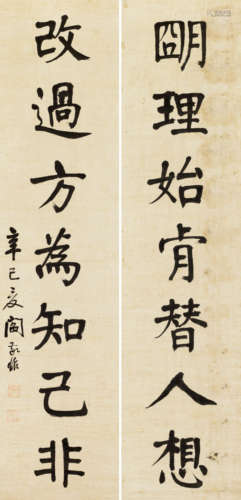 明理始肯替人想
改過方為知己非
辛巳夏 閻敬銘